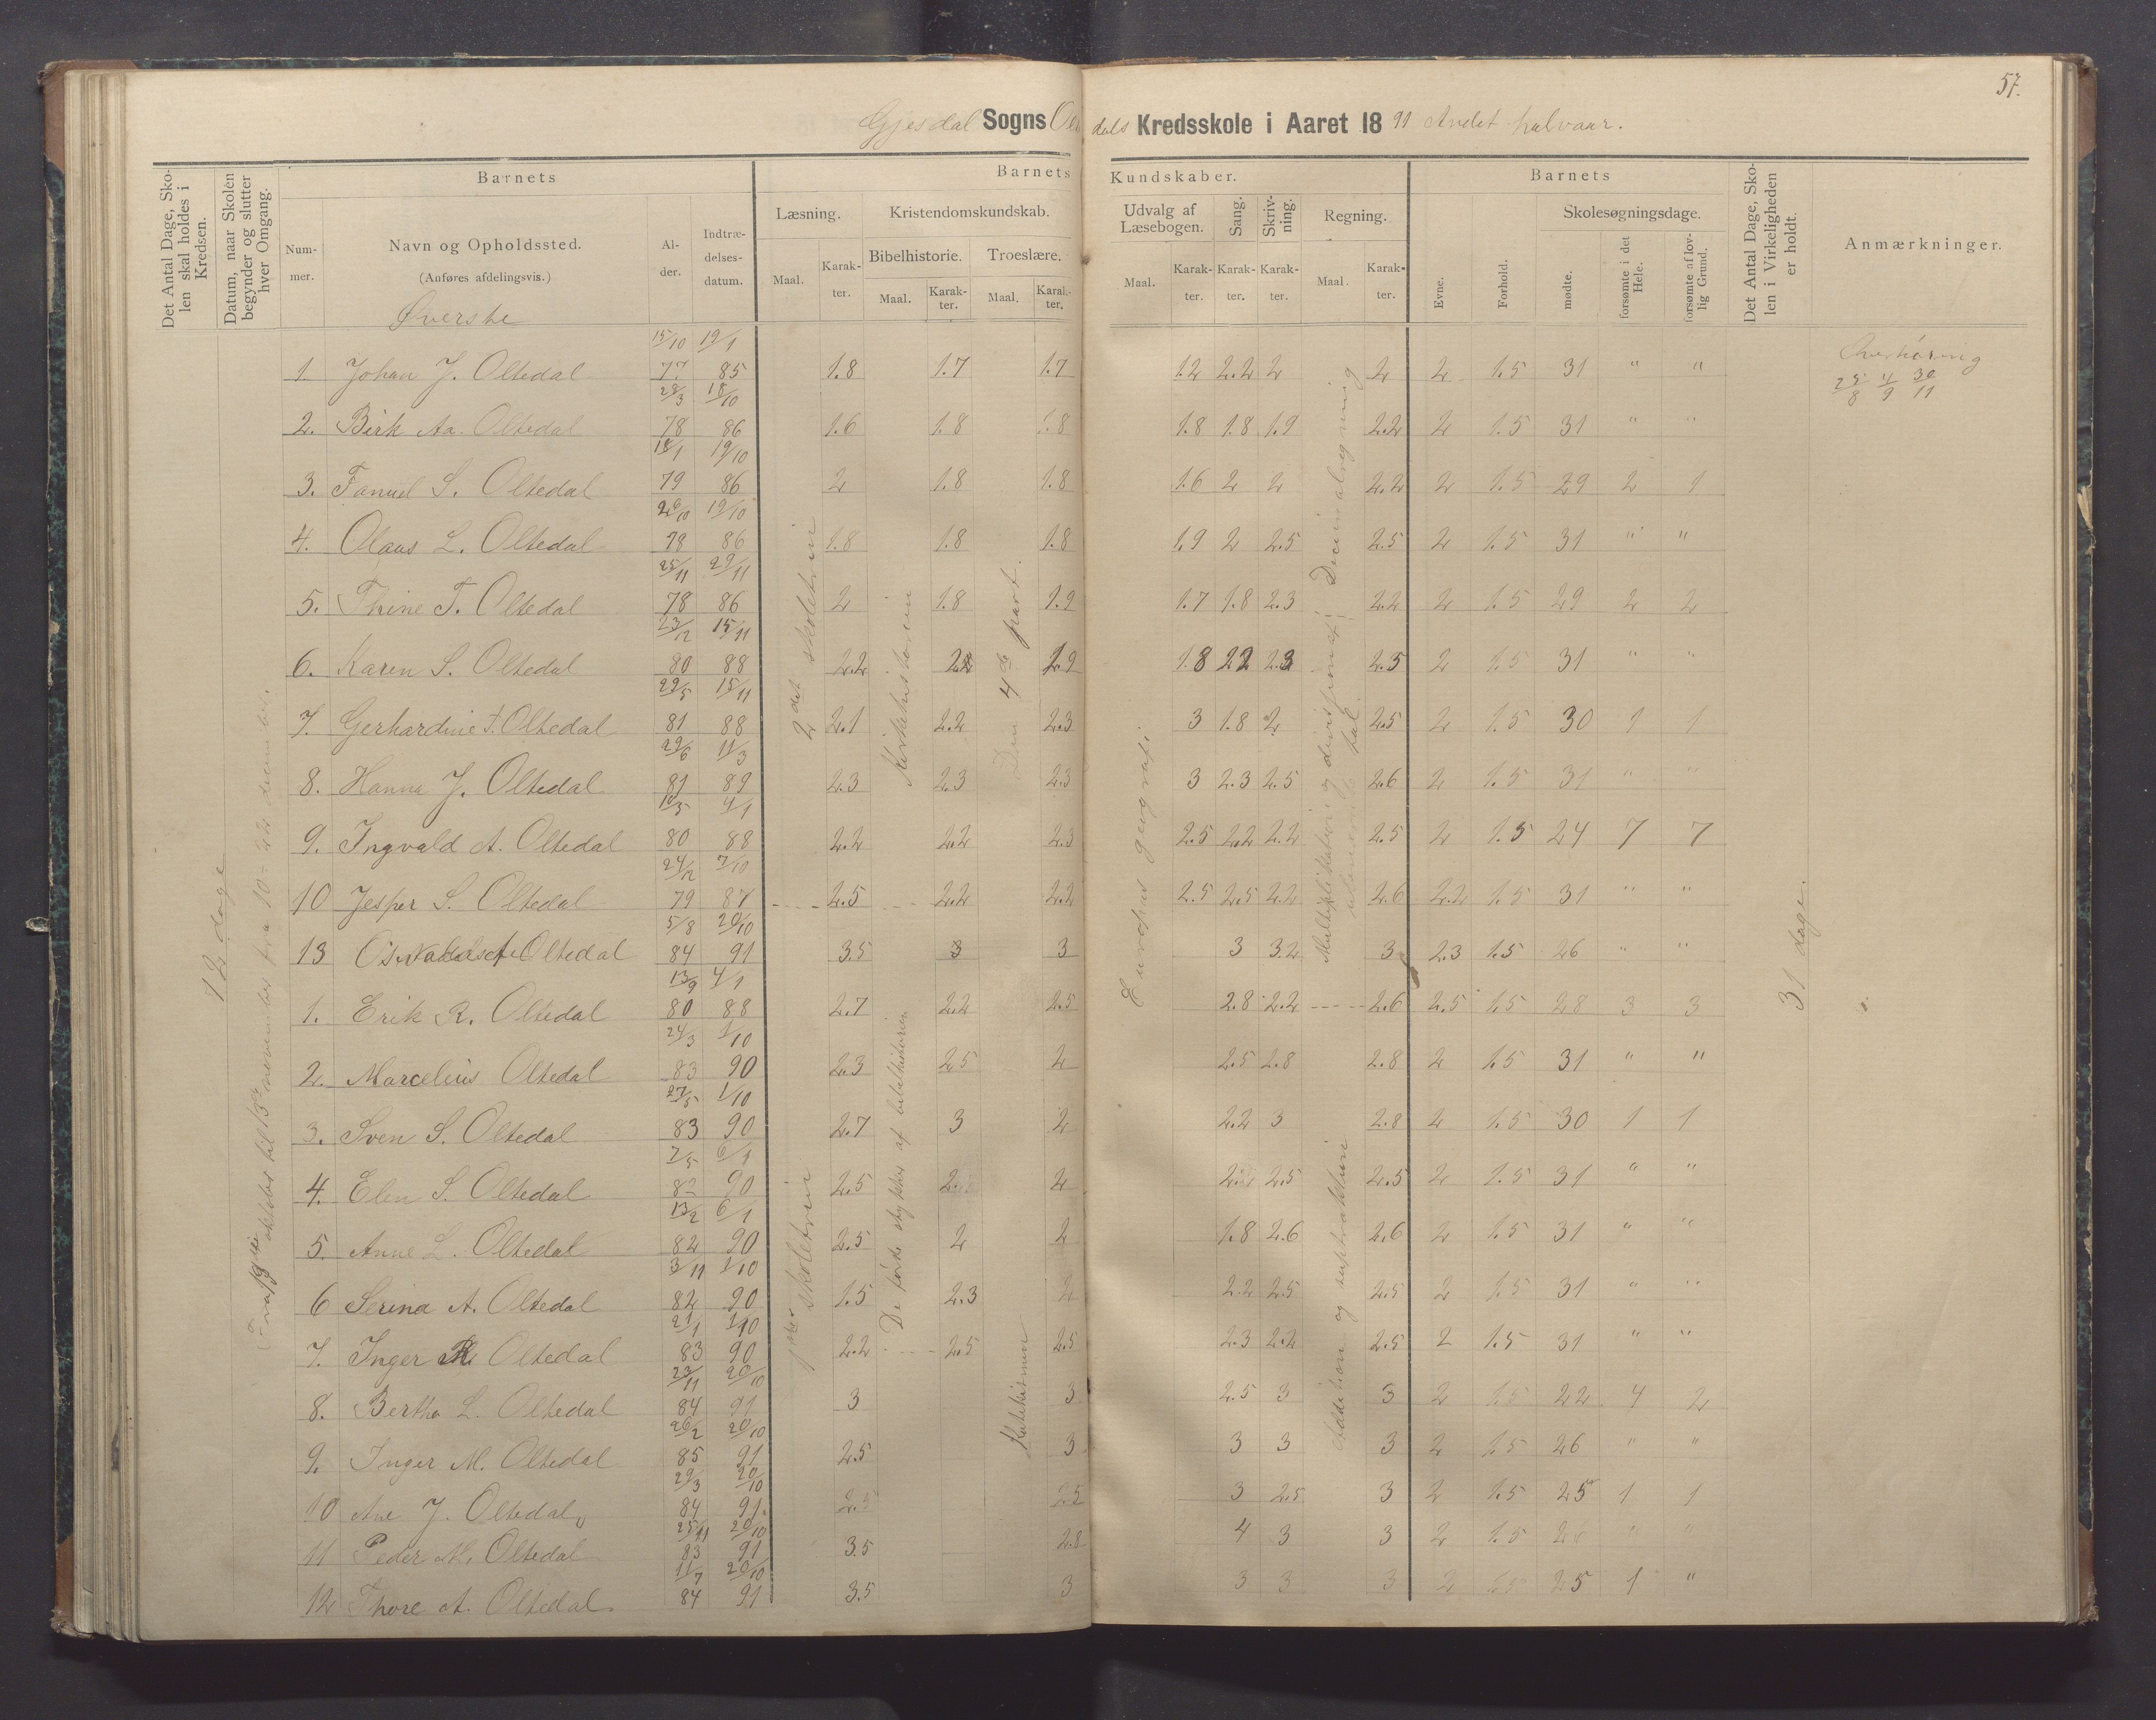 57.
Gjesdal Sogns Oltedals Kredsskole i Aaret 1891 Andet halvaar.
Det Antal Dage, Skolen skal holdes i Kredsen.
Datum, naar Skolen begynder og slutter hver Omgang.
Barnets
Nummer.
Navn og Opholdssted.
(Anføres afdelingsvis.)
Alder.
Indtrædelsesdatum.
Barnets Kundskaber.
Læsning.
Maal. Karakter.
Kristendomskundskab.
Bibelhistorie. Troeslære.
Maal. Karakter. Maal. Karakter.
Udvalg af Læsebogen.
Maal. Karakter.
Sang. Karakter.
Skrivning. Karakter.
Regning.
Maal. Karakter.
Barnets
Evne. Forhold.
Skolesøgningsdage.
mødte. forsømte i det Hele. forsømte af lovlig Grund.
Det Antal Dage, Skolen i Virkeligheden er holdt.
Anmærkninger.
Øverste
72 dage
2det skoletrin
Kirkehistorien
Den 4de part.
Europas geografi
31 dage.
1ste skoletrin
De første stykker af bibelhistorien
Katekismen
Addition og subtraktion
Overhøring
25/8 4/9 30/11
1. Johan J. Oltedal 15/10 77 19/1 85 1.8 1.7 1.7 1.2 2.2 2 2 2 1.5 31 " "
2. Birk Aa. Oltedal 28/3 78 18/10 86 1.6 1.8 1.8 1.8 1.8 1.9 2.2 2 1.5 31 " "
3. Tanud S. Oltedal 18/1 79 19/10 86 2 1.8 1.8 1.6 2 2 2.2 2 1.5 29 2 1
4. Olaus L. Oltedal 26/10 78 19/10 86 1.8 1.8 1.8 1.9 2 2.5 2.5 2 1.5 31 " "
5. Thine T. Oltedal 25/11 78 29/11 86 2 1.8 1.9 1.7 1.8 2.3 2.2 2 1.5 29 2 2
6. Karen S. Oltedal 23/12 80 15/11 88 2.2 1.8 2.3 2.5 2 1.5 31 " "
7. Gerhardine T. Oltedal 29/5 81 15/11 88 2.1 2.2 2.3 3 1.8 2 2.5 2 1.5 30 1 1
8. Hanna J. Oltedal 29/6 81 11/3 89 2.3 2.3 2.3 3 2.3 2.5 2.6 2 1.5 31 " "
9. Ingvald A. Oltedal 80 4/1 88 2.2 2.2 2.3 2.5 2.2 2.2 2.5 2 1.5 24 7 7
10 Jesper S. Oltedal 24/12 79 7/10 87 2.5 2.2 2.2 2.5 2.5 2.2 2.6 2.2 1.5 31 " "
13 Oltedal 5/8 84 20/10 91 3.5 3 3 3 3.2 3 2.3 1.5 26 " "
1. Erik R. Oltedal 13/9 80 4/1 88 2.7 2.2 2.5 2.8 2.2 2.6 2.5 1.5 28 3 3
2. Marcelius Oltedal 24/3 83 1/10 90 2.3 2.5 2 2.5 2.8 2.8 2 1.5 31 " "
3. Sven S. Oltedal 27/5 83 1/10 90 2.7 3 2 2.2 3 2.8 2 1.5 30 1 1
4. Elen S. Oltedal 7/5 82 6/1 90 2.5 2 2.5 2.5 2 1.5 31 " "
5. Anne L. Oltedal 13/2 82 6/1 90 2.5 2 2 1.8 2.6 2.6 2 1.5 31 " "
6 Serina A. Oltedal 3/11 82 1/10 90 1.5 2.3 2 2.2 2.5 2.5 2 1.5 31 " "
7. Inger R. Oltedal 21/1 83 1/10 90 2.2 2.5 2.5 2.3 2.2 2.5 2 1.5 31 " "
8. Bertha L. Oltedal 23/11 84 20/10 91 3 3 2.5 3 3 2 1.5 22 4 2
9. Inger M. Oltedal 26/2 85 20/10 91 2.5 3 3 3 3 2 1.5 26 " "
10 Ane J. Oltedal 29/3 84 20/10 91 2.5 2.5 3 2.5 3 2 1.5 25 1 1
11 Peder M. Oltedal 25/11 83 20/10 91 3.5 2.8 4 3 3 2 1.5 " "
12 Thore A. Oltedal 11/7 84 20/10 91 3.5 3 3 3 3 2 1.5 25 1 "